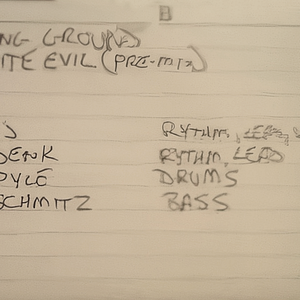 B
NG GROUND)
ITE EVIL (PRE-MIX)
RYTHM, LEAD
DENK RYTHM, LEAD
PYLE DRUMS
SCHMITZ BASS